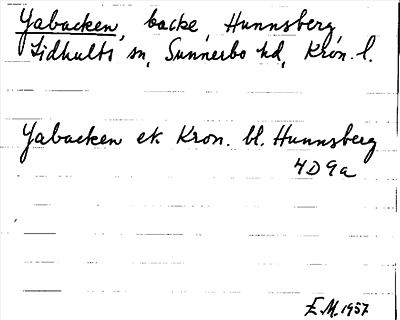 Yabacken, backe, Hunnsberg,
Lidhults sn, Sunnerbo hd, Kron. l.
Yabacken ek. Kron. bl. Hunnsberg
4D9a
E.M. 1957